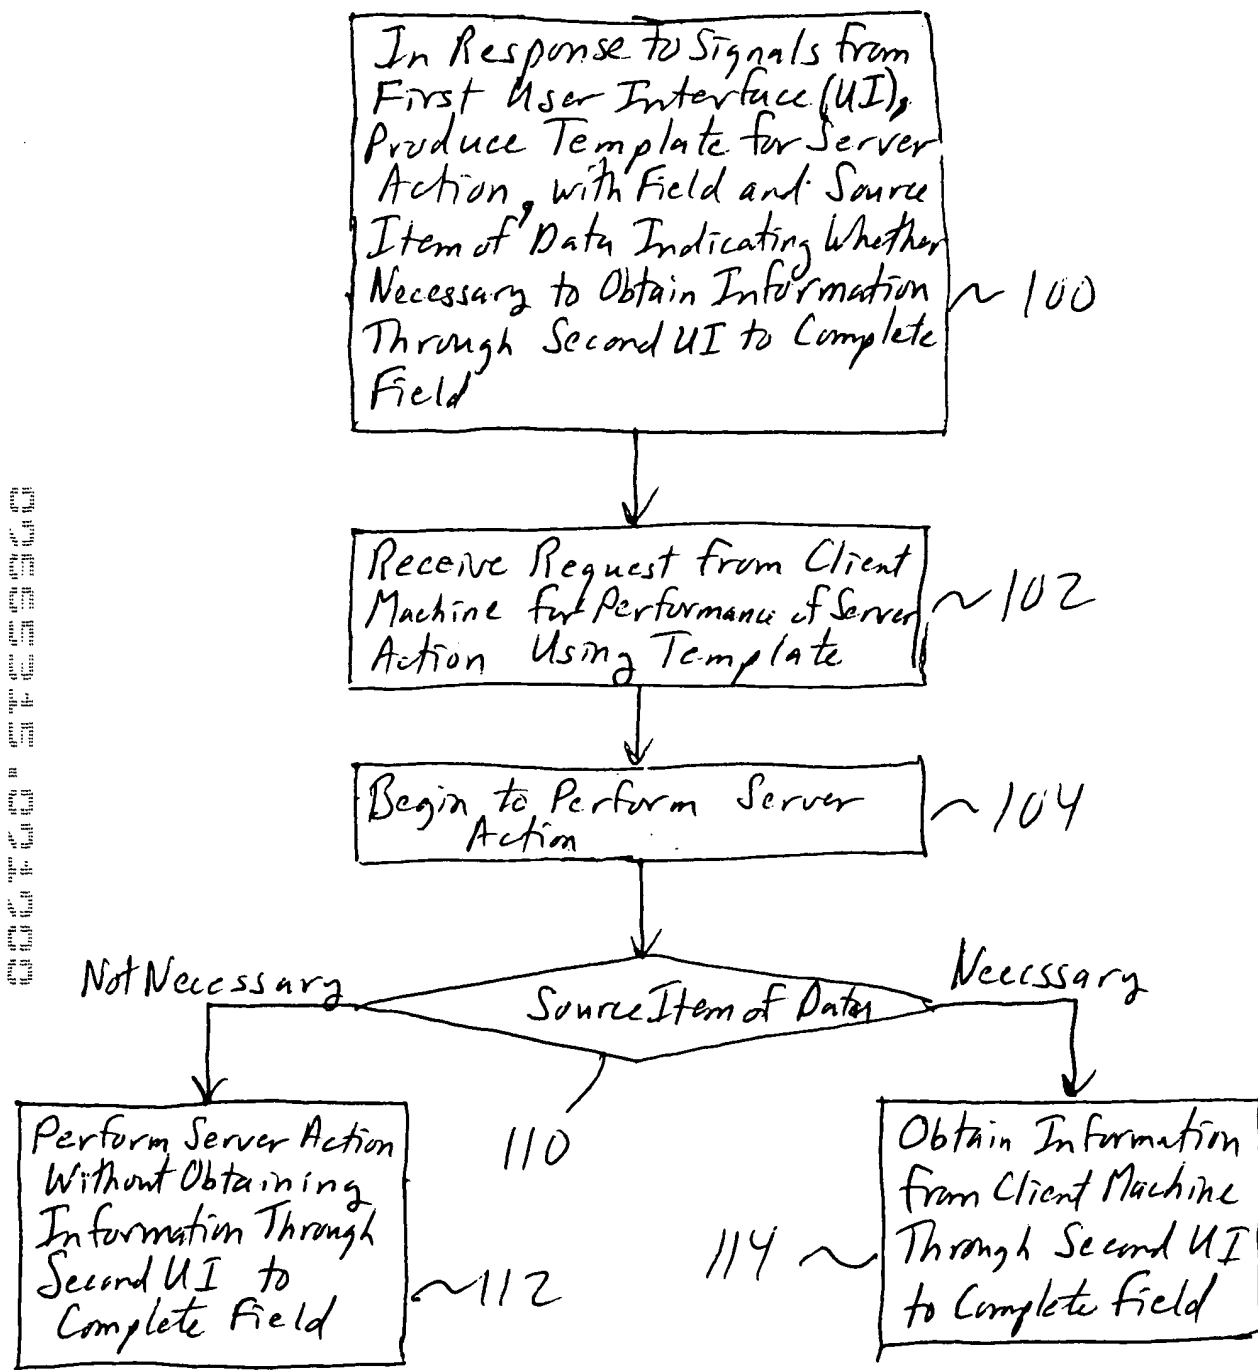 In Response to Signals from
First User Interface (UI),
Produce Template for Server
Action, with Field and Source
Item of Data Indicating Whether
Necessary to Obtain Information
Through Second UI to Complete
Field
~ 100
Receive Request from Client
Machine for Performance of Server
Action Using Template
~ 102
Begin to Perform Server
Action
~ 104
Not Necessary
Source Item of Data
Necessary
110
Perform Server Action
Without Obtaining
Information Through
Second UI to
Complete Field
~ 112
Obtain Information
from Client Machine
Through Second UI
to Complete Field
114 ~